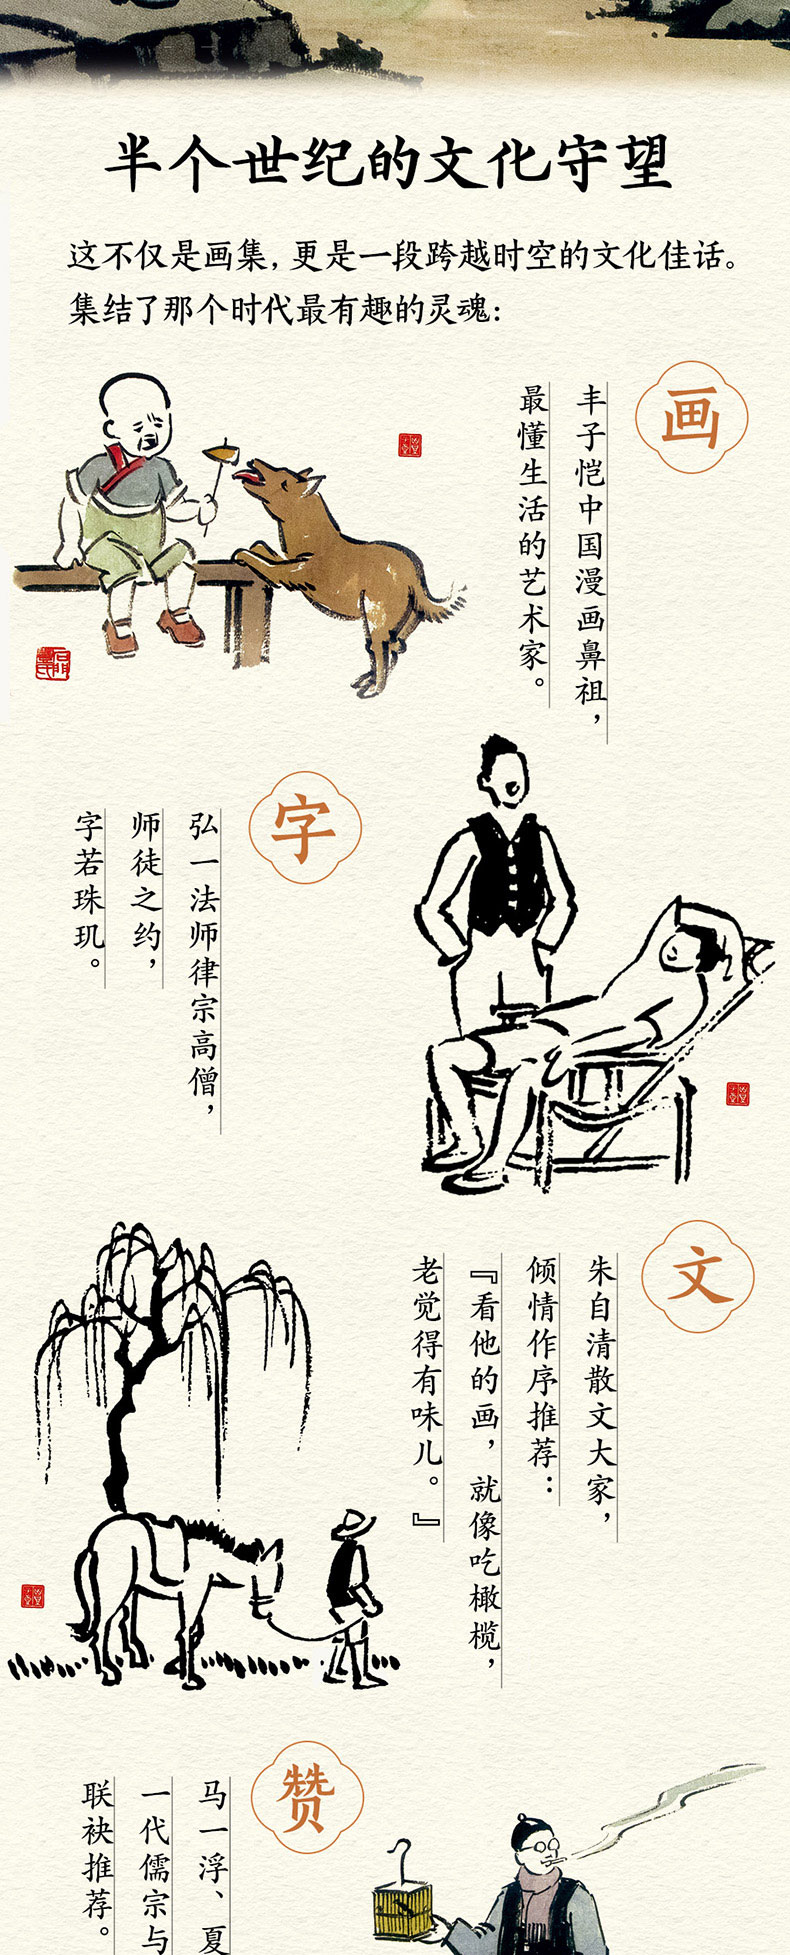 半个世纪的文化守望
这不仅是画集，更是一段跨越时空的文化佳话。
集结了那个时代最有趣的灵魂：
画
丰子恺中国漫画鼻祖，
最懂生活的艺术家。
字
弘一法师律宗高僧，
师徒之约，
字若珠玑。
文
朱自清散文大家，
倾情作序推荐：
『看他的画，就像吃橄榄，
老觉得有味儿。』
赞
马一浮、夏
一代儒宗与
联袂推荐。